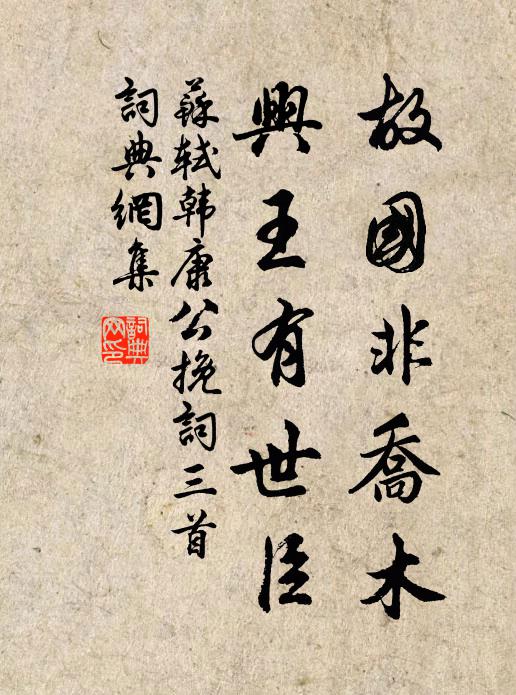 故國非喬木
興王有世臣
蘇軾韩康公挽詞三首
詞典網集
詞典
网印